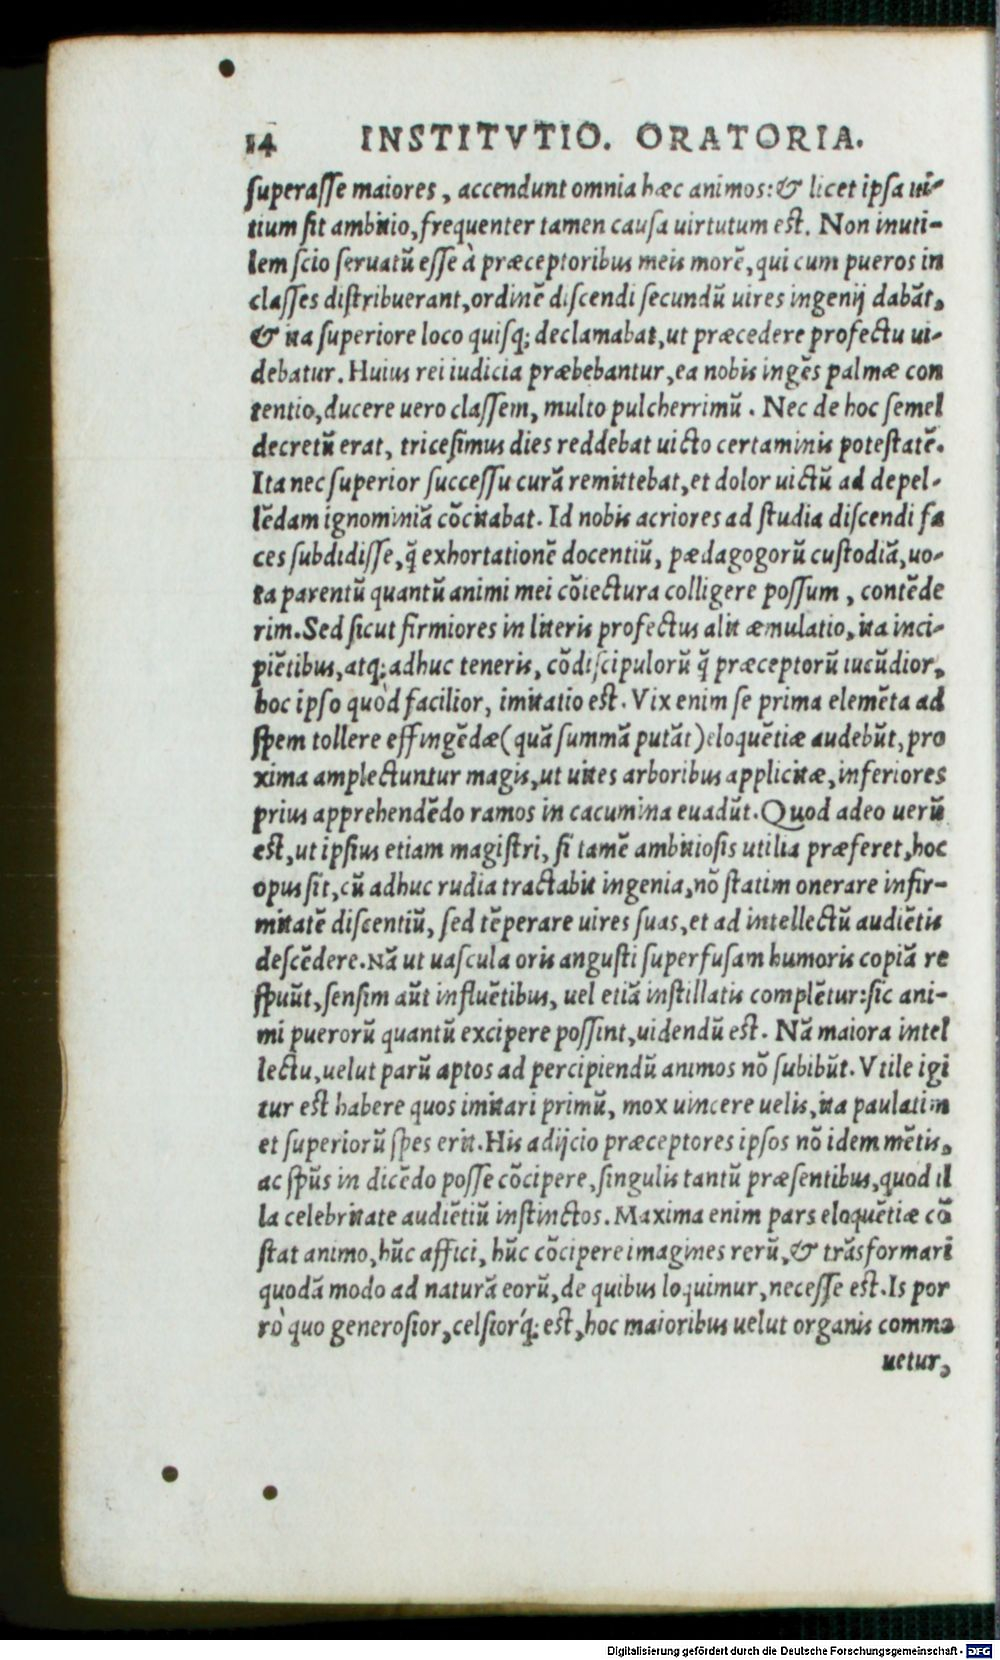 14 INSTITVTIO. ORATORIA.
superasse maiores, accendunt omnia hæc animos: & licet ipsa ui-
tium sit ambitio, frequenter tamen causa uirtutum est. Non inuti-
lem scio seruatũ esse à præceptoribus meis morẽ, qui cum pueros in
classes distribuerant, ordinẽ discendi secundũ uires ingenij dabãt,
& ita superiore loco quisq; declamabat, ut præcedere profectu ui-
debatur. Huius rei iudicia præbebantur, ea nobis ingẽs palmæ con
tentio, ducere uero classem, multo pulcherrimũ. Nec de hoc semel
decretũ erat, tricesimus dies reddebat uicto certaminis potestatẽ.
Ita nec superior successu curã remittebat, et dolor uictũ ad depel-
lẽdam ignominiã cõcitabat. Id nobis acriores ad studia discendi fa
ces subdidisse, q̃ exhortationẽ docentiũ, pædagogorũ custodiã, uo-
ta parentũ quantũ animi mei cõiectura colligere possum, contẽde
rim. Sed sicut firmiores in literis profectus alit æmulatio, ita inci-
piẽtibus, atq; adhuc teneris, cõdiscipulorũ q̃ præceptorũ iucũdior,
hoc ipso quòd facilior, imitatio est. Vix enim se prima elemẽta ad
spem tollere effingẽdæ (quã summã putãt) eloquẽtiæ audebũt, pro
xima amplectuntur magis, ut uites arboribus applicitæ, inferiores
prius apprehendẽdo ramos in cacumina euadũt. Quod adeo uerũ
est, ut ipsius etiam magistri, si tamẽ ambitiosis utilia præferet, hoc
opus sit, cũ adhuc rudia tractabit ingenia, nõ statim onerare infir-
mitatẽ discentiũ, sed tẽperare uires suas, et ad intellectũ audiẽtis
descẽdere. Nã ut uascula oris angusti superfusam humoris copiã re
spuũt, sensim aũt influẽtibus, uel etiã instillatis complẽtur: sic ani-
mi puerorũ quantũ excipere possint, uidendũ est. Nã maiora intel
lectu, uelut parũ aptos ad percipiendũ animos nõ subibũt. Vtile igi
tur est habere quos imitari primũ, mox uincere uelis, ita paulatim
et superiorũ spes erit. His adijcio præceptores ipsos nõ idem mẽtis,
ac spũs in dicẽdo posse cõcipere, singulis tantũ præsentibus, quod il
la celebritate audiẽtiũ instinctos. Maxima enim pars eloquẽtiæ cõ
stat animo, hũc affici, hũc cõcipere imagines rerũ, & trãsformari
quodã modo ad naturã eorũ, de quibus loquimur, necesse est. Is por
rò quo generosior, celsiorq́; est, hoc maioribus uelut organis commo
uetur,
Digitalisierung gefördert durch die Deutsche Forschungsgemeinschaft - DFG